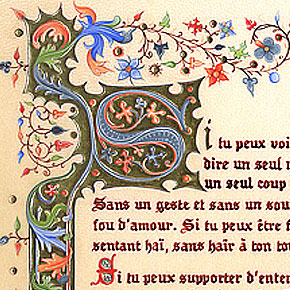 Si tu peux voi
dire un seul
un seul coup
Sans un geste et sans un sou
fou d'amour. Si tu peux être f
sentant haï, sans haïr à ton to
Si tu peux supporter d'enten